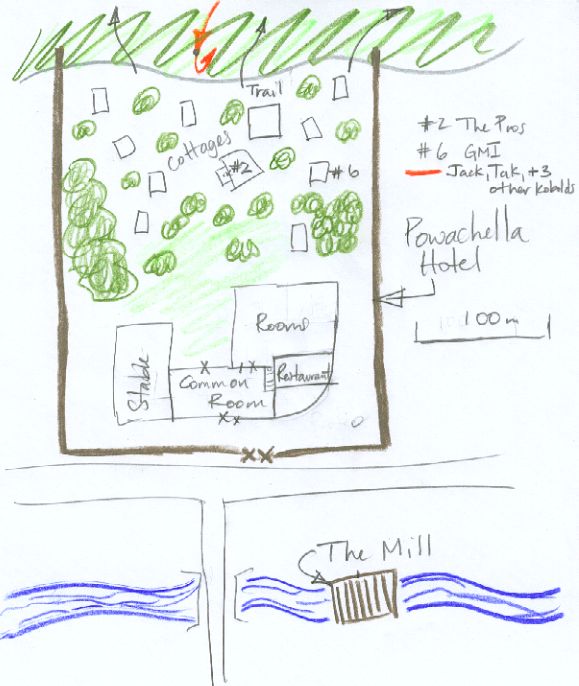 Trail
Cottages
#2
#6
#2 The Pros
#6 GMI
Jack, Tak, +3
other Kobolds
Powachella
Hotel
100m
Rooms
Stable
Common
Room
Restaurant
The Mill